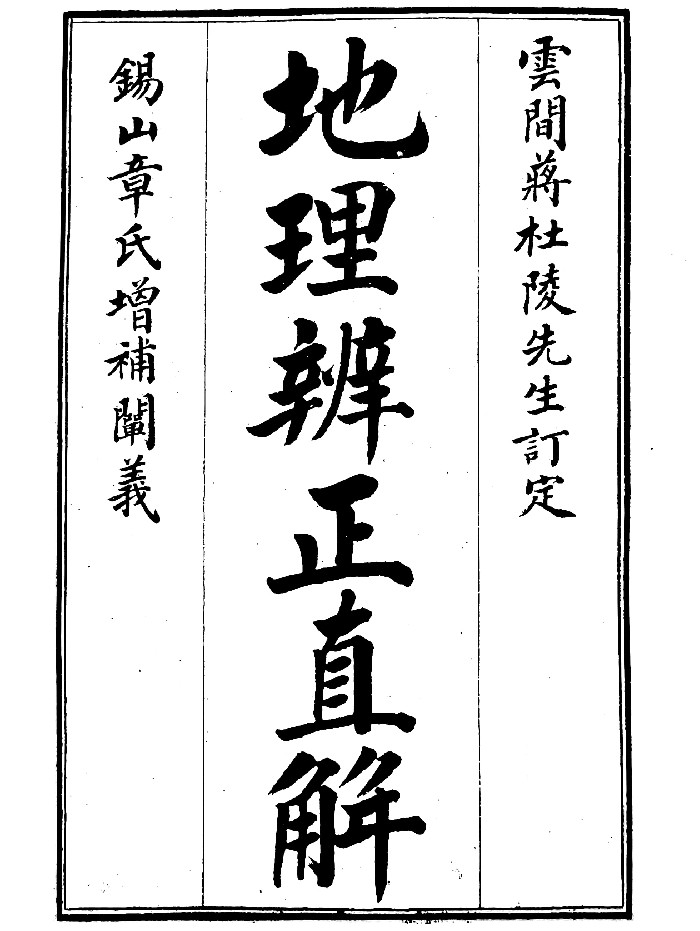 雲間蔣杜陵先生訂定
地理辨正直解
錫山章氏增補闡義